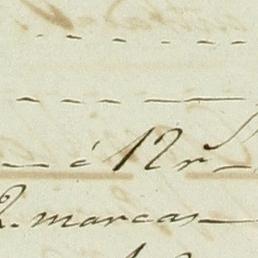 à 12 r
2. marcas